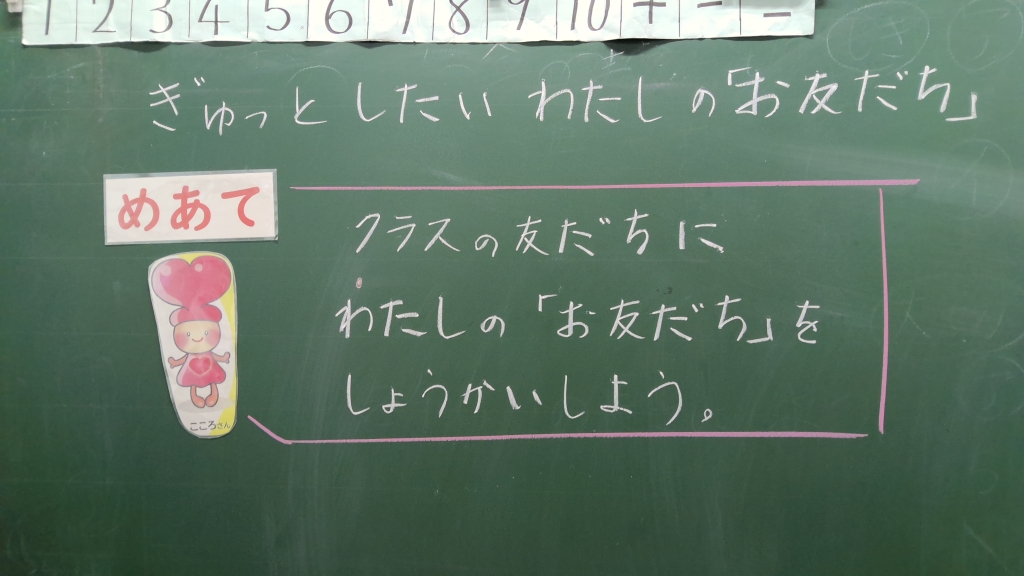 1 2 3 4 5 6 7 8 9 10 + - =
ぎゅっと したい わたしの「お友だち」
めあて
クラスの友だちに
わたしの「お友だち」を
しょうかいしよう。
こころさん